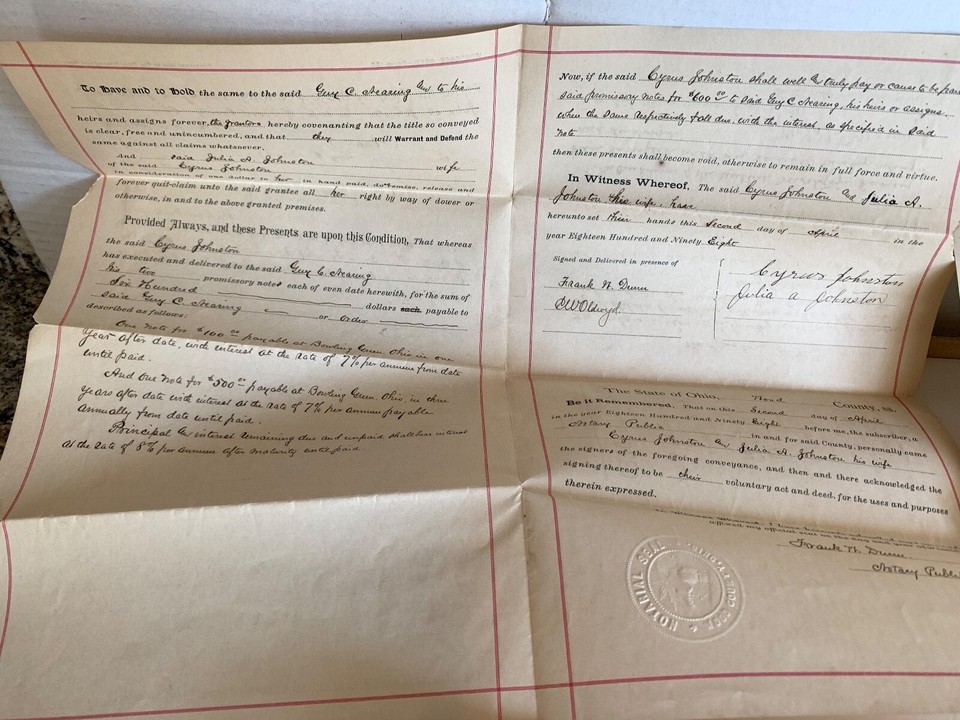 To Have and to Hold the same to the said Guy C. Nearing and to his
heirs and assigns forever, the grantors hereby covenanting that the title so conveyed
is clear, free and unincumbered, and that they will Warrant and Defend the
same against all claims whatsoever.
And said Julia A. Johnston
of the said Cyrus Johnston wife
in consideration of one dollar to her in hand paid, do remise, release and
forever quit-claim unto the said grantee all her right by way of dower or
otherwise, in and to the above granted premises.
Provided Always, and these Presents are upon this Condition, That whereas
the said Cyrus Johnston
has executed and delivered to the said Guy C. Nearing
his two promissory notes each of even date herewith, for the sum of
Six Hundred dollars each, payable to
said Guy C. Nearing or order
described as follows:
One note for $100 00 payable at Bowling Green Ohio in one
year after date, with interest at the rate of 7% per annum from date
until paid.
And One note for $500 00 payable at Bowling Green, Ohio in three
years after date with interest at the rate of 7% per annum payable
annually from date until paid.
Principal & interest remaining due and unpaid shall bear interest
at the rate of 8% per annum after maturity until paid.
Now, if the said Cyrus Johnston shall well & truly pay or cause to be paid
said promissory notes for $600 00 to said Guy C Nearing, his heirs or assigns
when the same respectively fall due, with the interest, as specified in said
note
then these presents shall become void, otherwise to remain in full force and virtue.
In Witness Whereof, The said Cyrus Johnston and Julia A.
Johnston his wife, have
hereunto set their hands this Second day of April in the
year Eighteen Hundred and Ninety Eight
Signed and Delivered in presence of
Frank W. Dunn
Cyrus Johnston
Julia A Johnston
The State of Ohio, Wood County, ss.
Be it Remembered, That on this Second day of April
in the year Eighteen Hundred and Ninety Eight before me, the subscriber, a
Notary Public in and for said County, personally came
Cyrus Johnston and Julia A. Johnston, his wife
the signers of the foregoing conveyance, and then and there acknowledged the
signing thereof to be their voluntary act and deed, for the uses and purposes
therein expressed.
In Witness Whereof, I have hereunto subscribed my name and
affixed my official seal on the day and year
Frank W. Dunn
Notary Publi
NOTARIAL SEAL WOOD